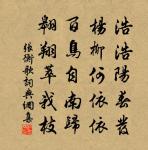 浩浩陽春發
楊柳何依依
百鳥自南歸
翱翔萃我枝
張衡歌詞典網集